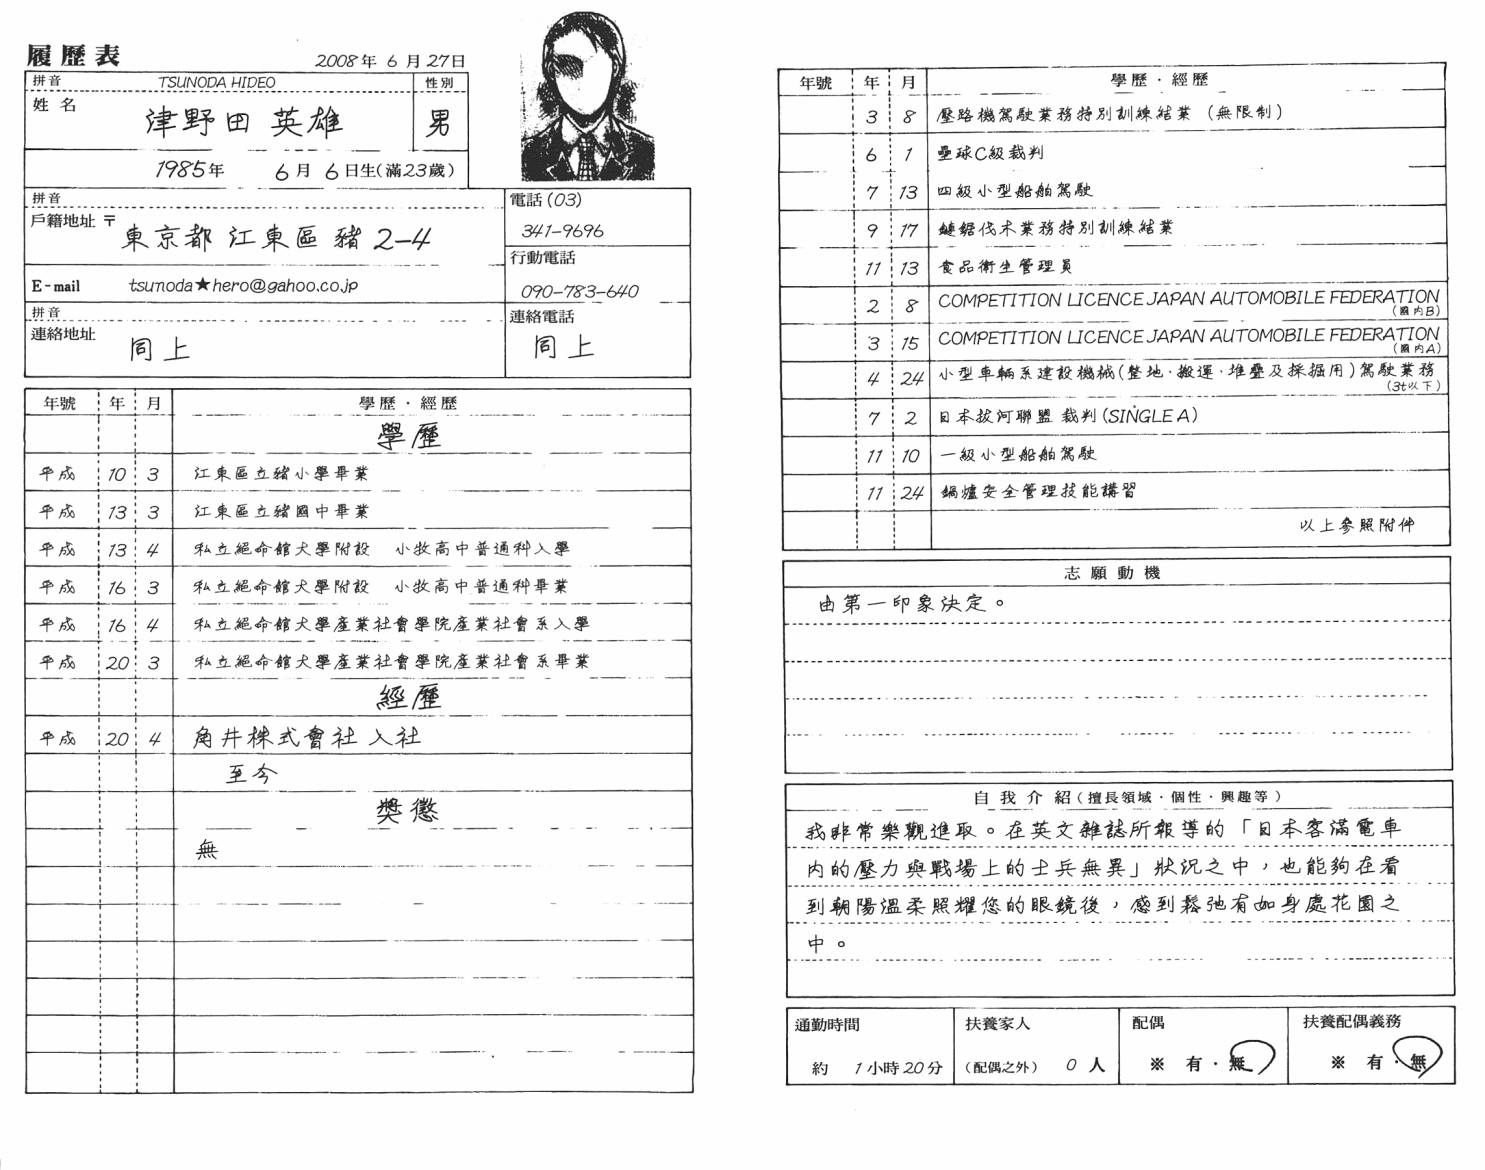 履歷表
2008年 6月27日
拼音 TSUNODA HIDEO 性別
姓名 津野田 英雄 男
1985年 6月 6日生(滿23歲)
拼音
戶籍地址 〒 東京都 江東區 豬 2-4
電話(03)
341-9696
行動電話
090-783-640
E-mail tsunoda★hero@gahoo.co.jp
拼音
連絡地址 同上
連絡電話
同上
年號 年 月 學歷・經歷
學歷
平成 10 3 江東區立豬小學畢業
平成 13 3 江東區立豬國中畢業
平成 13 4 私立絕命館大學附設 小牧高中普通科入學
平成 16 3 私立絕命館大學附設 小牧高中普通科畢業
平成 16 4 私立絕命館大學產業社會學院產業社會系入學
平成 20 3 私立絕命館大學產業社會學院產業社會系畢業
經歷
平成 20 4 角井株式會社 入社
至今
獎懲
無
年號 年 月 學歷・經歷
3 8 壓路機駕駛業務特別訓練結業 (無限制)
6 1 壘球C級裁判
7 13 四級小型船舶駕駛
9 17 鏈鋸伐木業務特別訓練結業
11 13 食品衛生管理員
2 8 COMPETITION LICENCE JAPAN AUTOMOBILE FEDERATION
(國內B)
3 15 COMPETITION LICENCE JAPAN AUTOMOBILE FEDERATION
(國內A)
4 24 小型車輛系建設機械(整地・搬運・堆疊及採掘用)駕駛業務
(3t以下)
7 2 日本拔河聯盟 裁判(SINGLE A)
11 10 一級小型船舶駕駛
11 24 鍋爐安全管理技能講習
以上參照附件
志願動機
由第一印象決定。
自我介紹(擅長領域・個性・興趣等)
我非常樂觀進取。在英文雜誌所報導的「日本客滿電車
內的壓力與戰場上的士兵無異」狀況之中，也能夠在看
到朝陽溫柔照耀您的眼鏡後，感到鬆弛有如身處花園之
中。
通勤時間 扶養家人 配偶 扶養配偶義務
約 1小時20分 (配偶之外) 0人 ※ 有・無 ※ 有・無